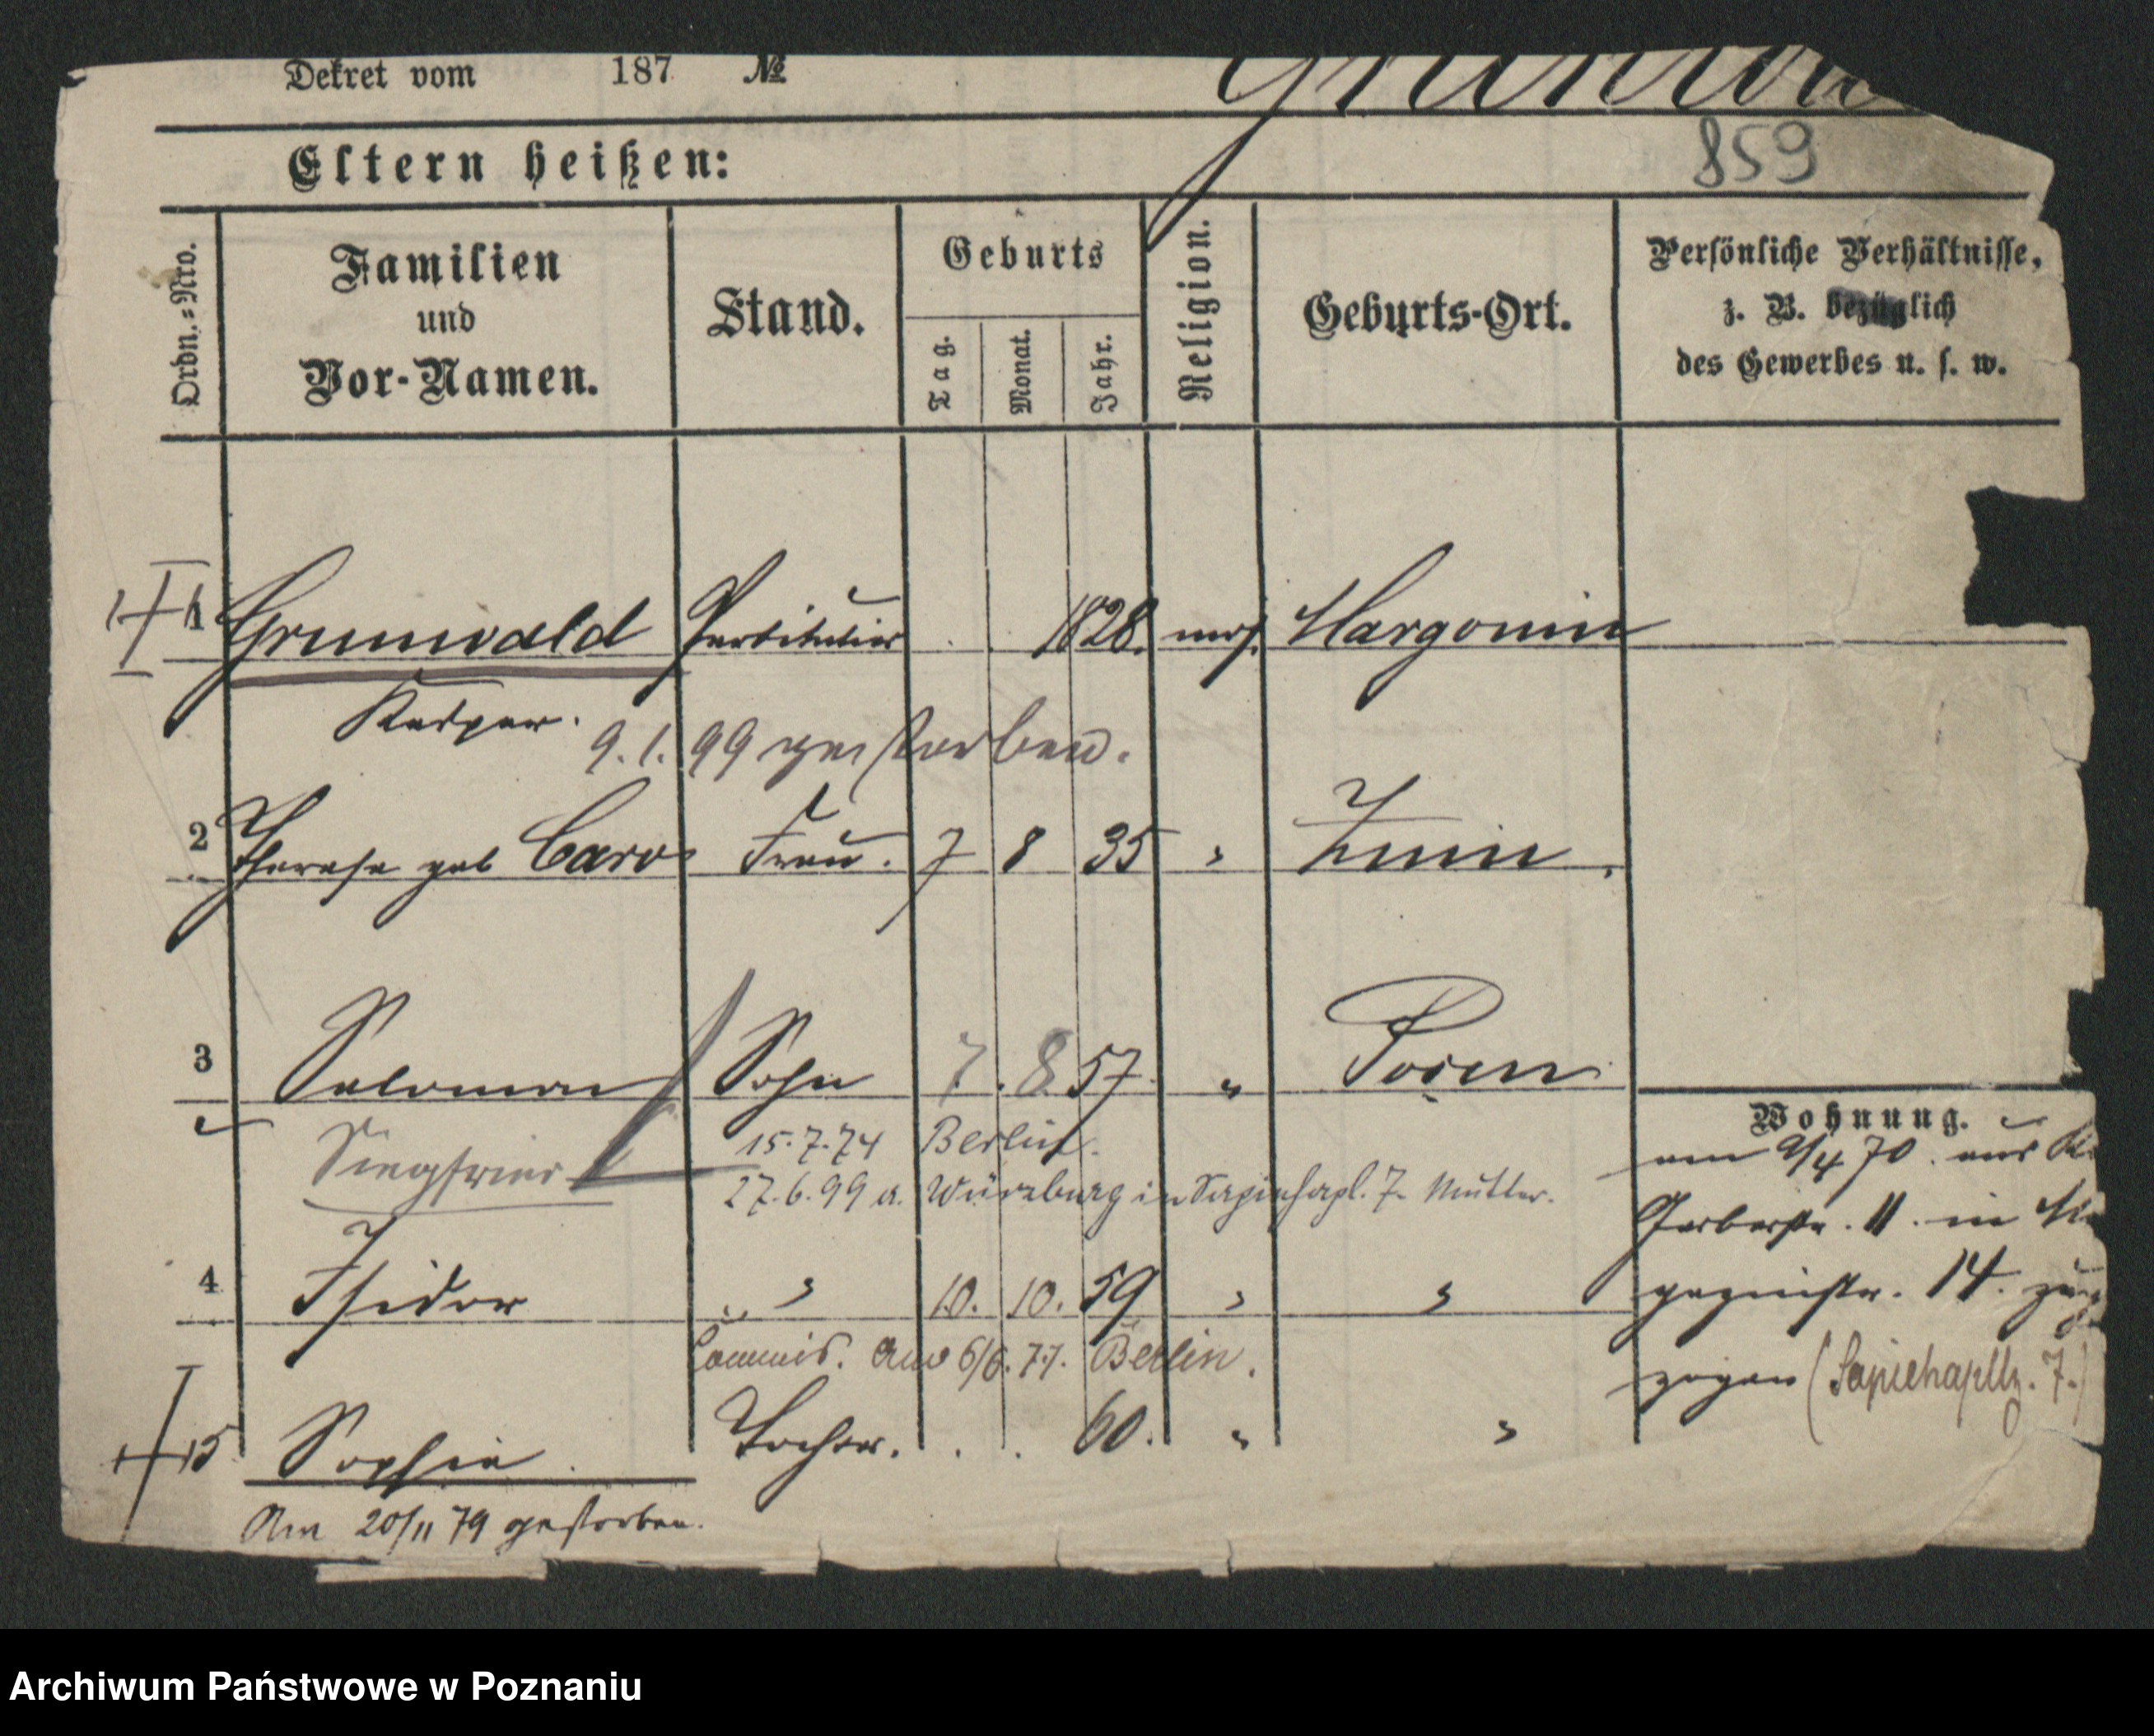 Dekret vom 187 №
859
Eltern heißen:
Ordn.=Nro.
Familien
und
Vor-Namen.
Stand.
Geburts
Tag.
Monat.
Jahr.
Religion.
Geburts-Ort.
Persönliche Verhältnisse,
z. B. bezüglich
des Gewerbes u. s. w.
1 Grunwald Partikulier 1828. mos. Margonin
Kasper.
9.1.99 gestorben.
2 Therese geb Caro Frau. 7 8 35 " Znin.
3 Salomon Sohn 7. 8 57 " Posen
Siegfried
15.7.74 Berlin.
27.6.99 a. Würzburg in Sapiehapl. 7. Mutter.
4 Isidor " 10. 10. 59 " "
Commis. Am 6/6. 77. Berlin.
5 Sophie Tochter. 60. " "
Am 20/11 79 gestorben.
Wohnung.
am 9/4 70. aus
Gerberstr. 11. in
gazinstr. 14.
zogen (Sapiehapltz. 7.)
Archiwum Państwowe w Poznaniu